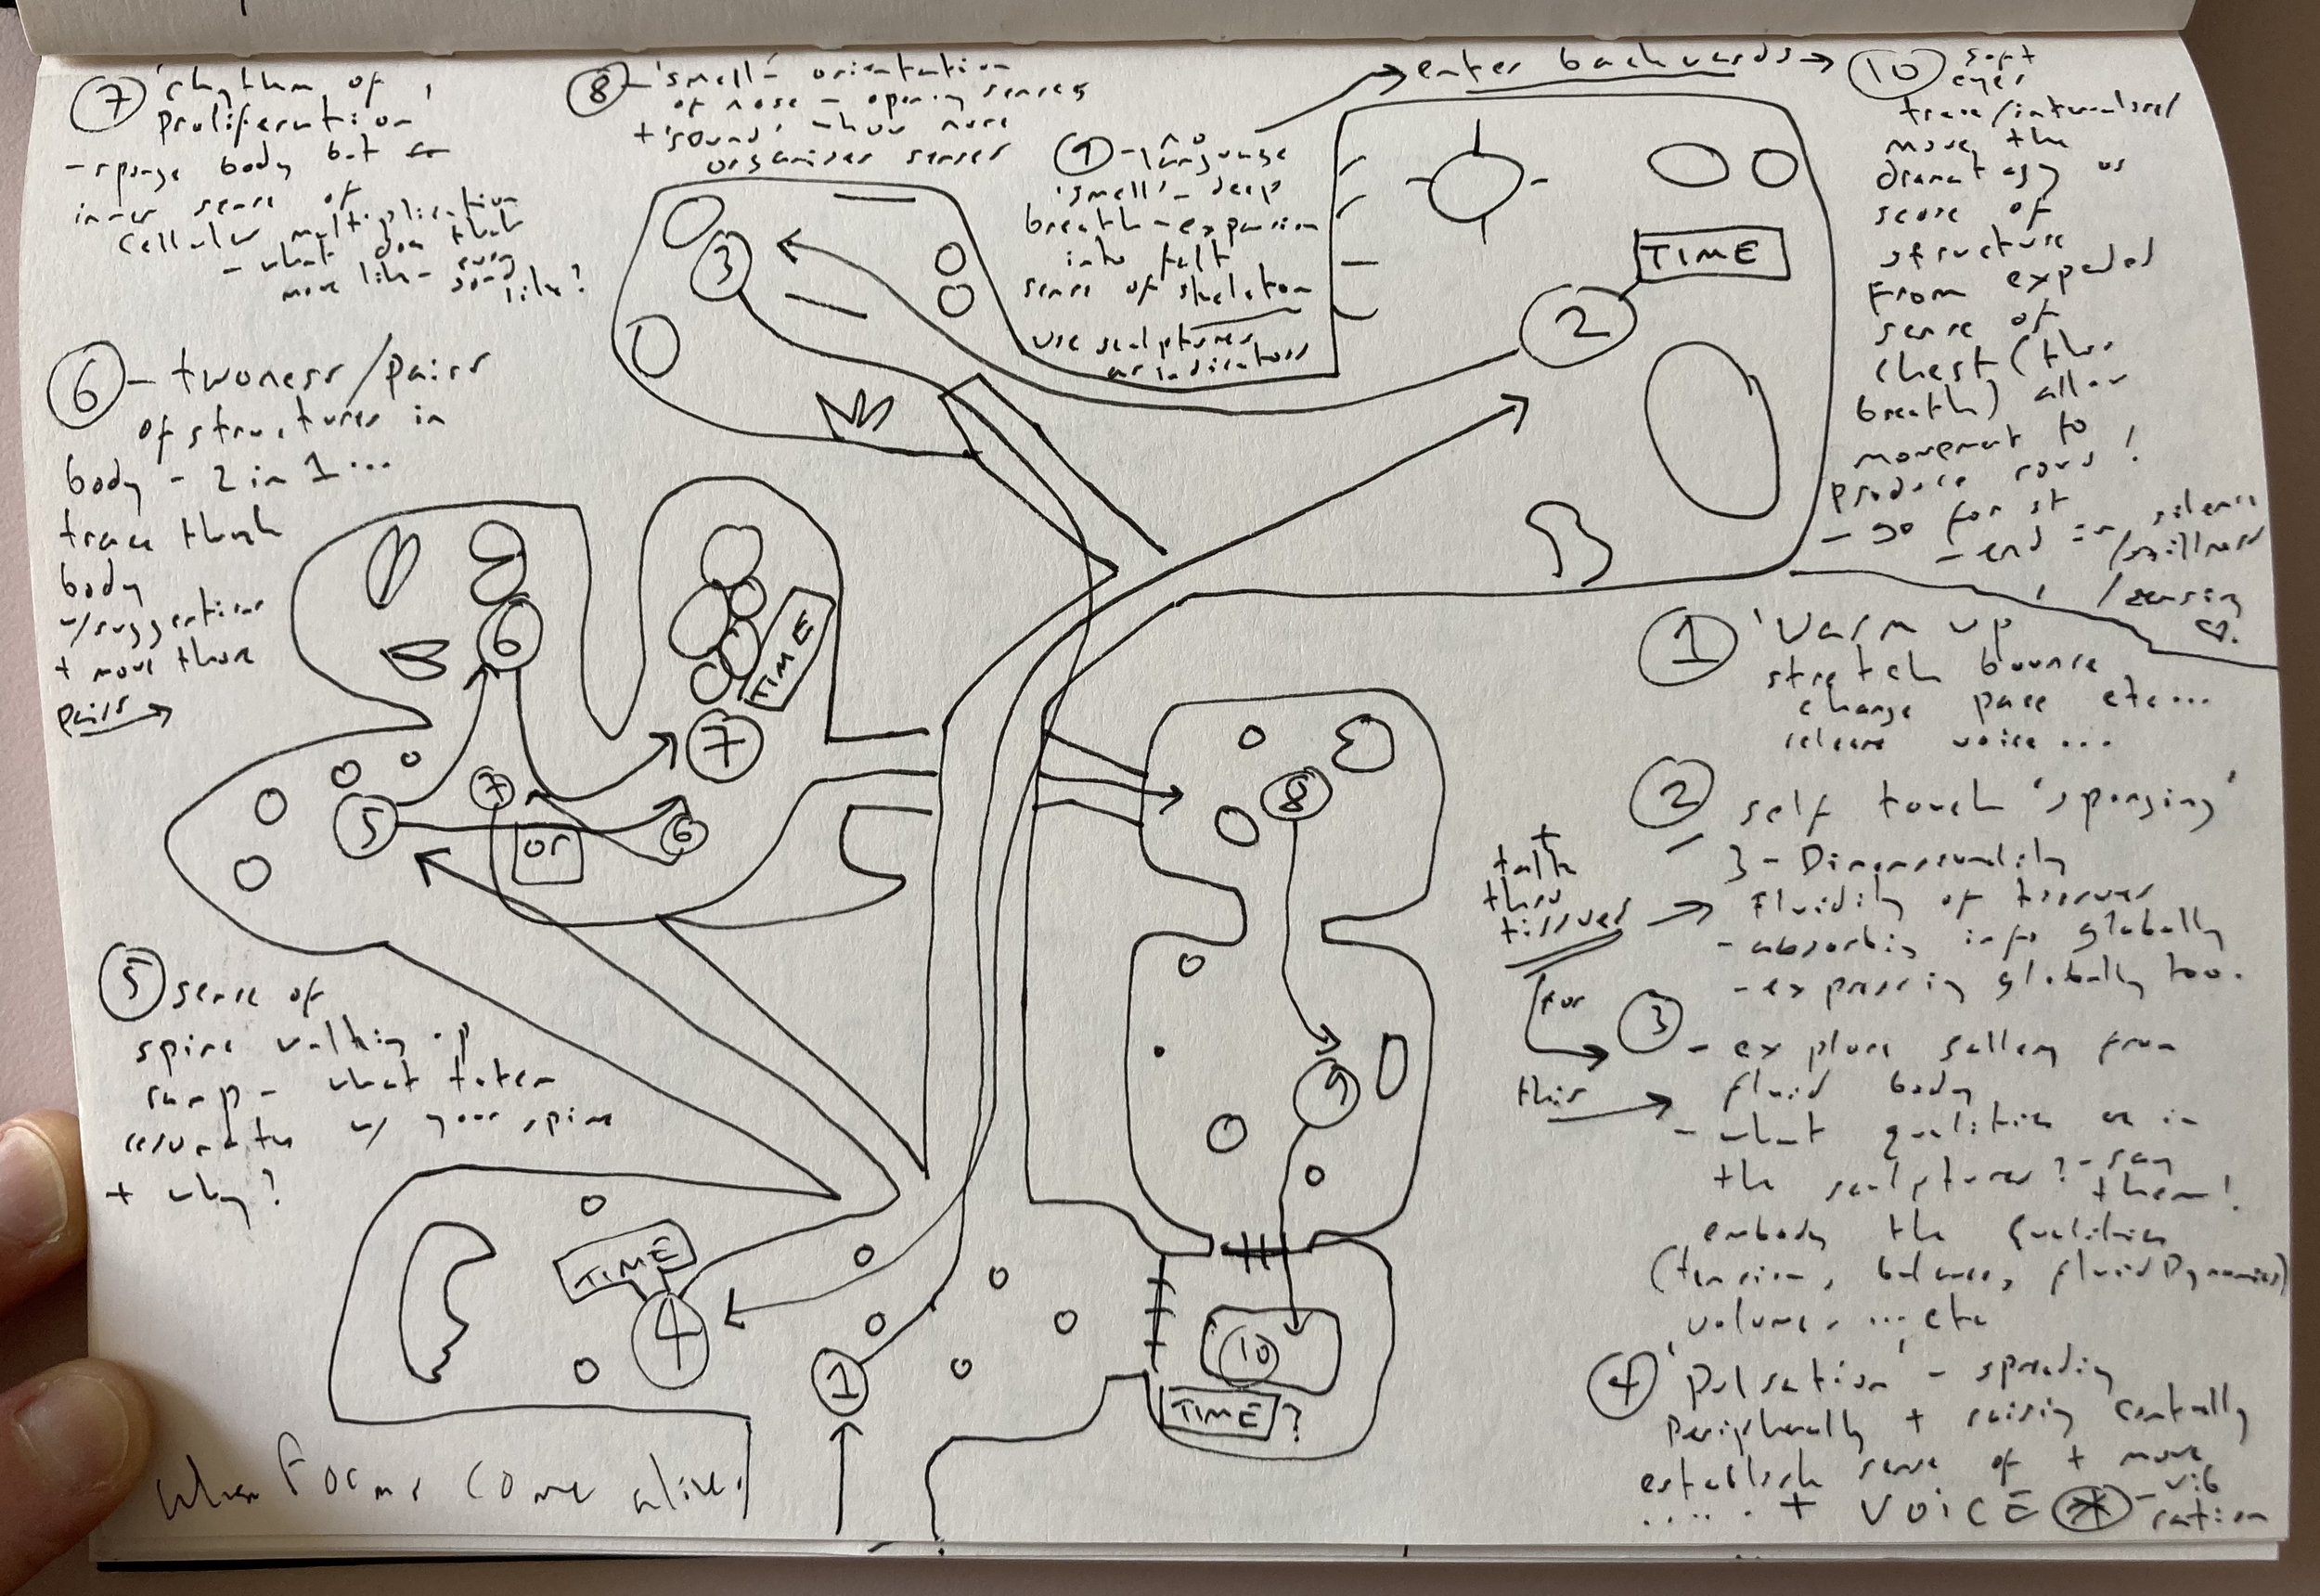 7 'rhythm of
proliferation'
- sponge body but
inner sense of
cellular multiplication
- what does that
move like - even
sound like?
8 - 'smell' - orientation
of nose - opening senses
+ 'sound' - how nose
organises senses
enter backwards →
9 - language
'smell' - deep
breath - expansion
into felt
sense of skeleton
use sculptures
as indicators
10 soft
eyes
trace/internalise/
move the
sense of
structure
from expanded
sense of
chest (thru
breath) allow
movement to
produce sound!
- go for it
- end in silence
/stillness
/sensing
6 - twoness/pairs
of structures in
body - 2 in 1...
trace through
body
w/suggestions
+ move those
pairs →
5 sense of
spine walking up
ramp - what
resonates w/ your spine
+ why?
1 'Warm up
stretch bounce
change pace etc...
release voice...
2 self touch 'sponging'
3-Dimensionality
+
talk
thru
tissues →
fluidity of tissues
- absorbing info globally
- expressing globally too.
for
this →
3 - explore gallery from
fluid body
- what qualities are in
the sculptures? - say
them!
embody the qualities
(tension, balance, fluid Dynamics)
volume, ... etc
4 'Pulsation' - spreading
Peripherally + raising centrally
establish sense of + move
..... + VOICE * - vib
ration
3
2
TIME
6
7
TIME
5
7
or
6
8
9
TIME
4
1
10
TIME ?
When Forms Come Alive